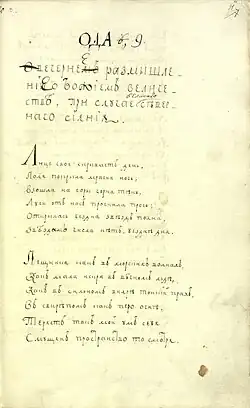 ОДА 9.
Вечернее размышле-
нїе о Божїемъ величе-
ствѣ, при случаѣ великаго сѣвер-
наго сїянїя.
Лице свое скрываетъ день,
Поля покрыла мрачна ночь,
Взошла на горы чорна тѣнь,
Лучи отъ насъ прогнали прочь.
Открылась бездна звѣздъ полна,
Звѣздамъ числа нѣтъ, безднѣ дна.
Песчинка какъ въ морскихъ волнахъ,
Какъ мала искра въ вѣчномъ льдѣ,
Какъ въ сильномъ вихрѣ тонкїй прахъ,
Въ свирѣпомъ какъ перо огнѣ,